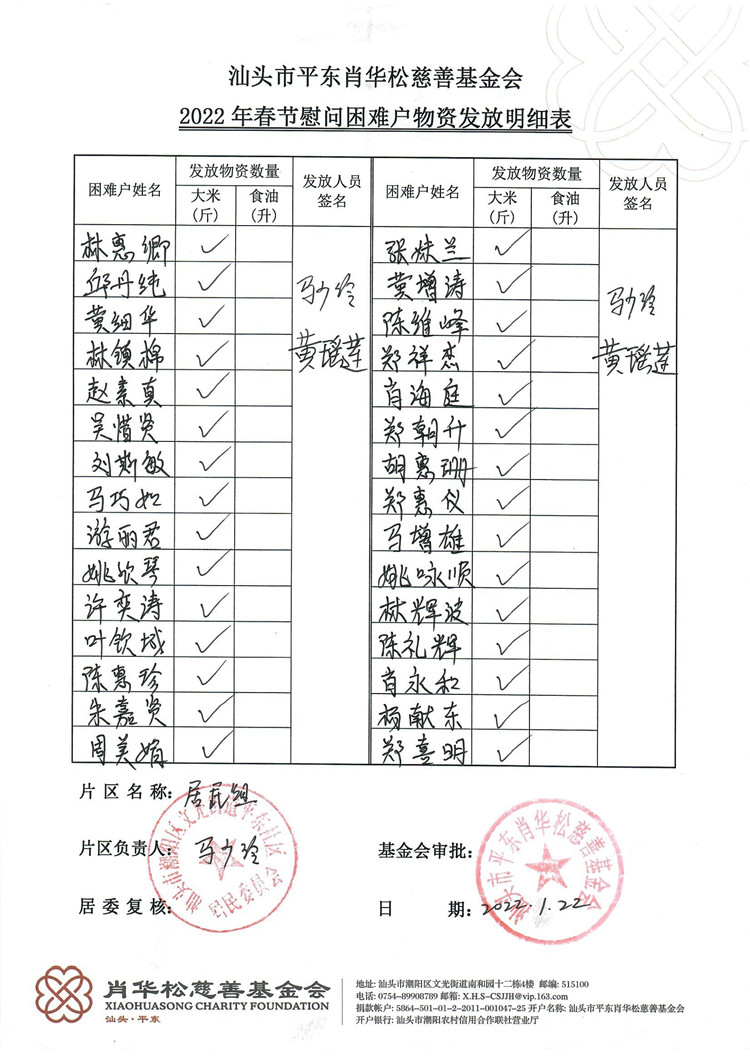 汕头市平东肖华松慈善基金会
2022年春节慰问困难户物资发放明细表
困难户姓名 发放物资数量 发放人员签名 困难户姓名 发放物资数量 发放人员签名
大米(斤) 食油(升) 大米(斤) 食油(升)
林惠卿 ✓ 张妹兰 ✓
邱丹纯 ✓ 马少玲 黄增涛 ✓ 马少玲
黄细华 ✓ 陈维峰 ✓
林镇棉 ✓ 黄瑶莲 郑祥杰 ✓ 黄瑶莲
赵素真 ✓ 肖海庭 ✓
吴惜贤 ✓ 郑朝升 ✓
刘斯敏 ✓ 胡惠珊 ✓
马巧如 ✓ 郑惠仪 ✓
游丽君 ✓ 马增雄 ✓
姚欣琴 ✓ 姚咏顺 ✓
许奕涛 ✓ 林辉波 ✓
叶钦城 ✓ 陈礼辉 ✓
陈惠珍 ✓ 肖永和 ✓
朱嘉贤 ✓ 杨献东 ✓
周美娟 ✓ 郑喜明 ✓
片区名称：居民组
片区负责人：马少玲 基金会审批：
居委复核： 日 期：2022.1.22
汕头市潮阳区文光街道平东社区
居民委员会
汕头市平东肖华松慈善基金会
肖华松慈善基金会
XIAOHUASONG CHARITY FOUNDATION
汕头·平东
地址: 汕头市潮阳区文光街道南和园十二栋4楼 邮编: 515100
电话: 0754-89908789 邮箱: X.H.S-CSJJH@vip.163.com
捐款帐户: 5864-501-01-2-2011-001047-25 开户名称: 汕头市平东肖华松慈善基金会
开户银行: 汕头市潮阳农村信用合作联社营业厅